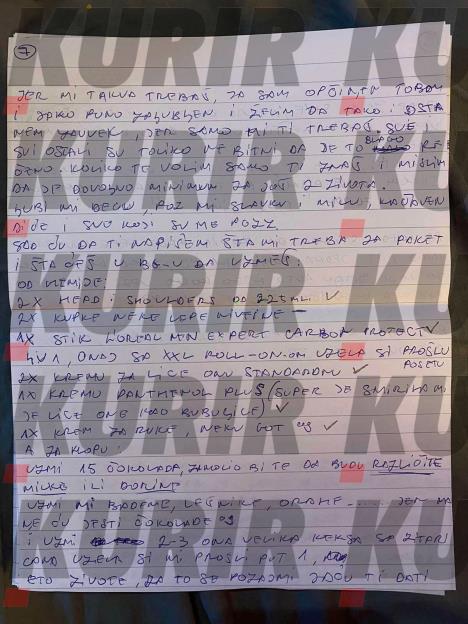 7
JER MI TAKVA TREBAŠ, JA SAM OPČINJEN TOBOM
I JAKO PUNO ZALJUBLJEN I ŽELIM DA TAKO I OSTA
NEM ZAUVEK JER SAMO MI TI TREBAŠ. SVE I
SVI OSTALI SU TOLIKO NEBITNI DA JE TO BLAGO REČ
ENO. KOLIKO TE VOLIM SAMO TI ZNAŠ I MISLIM
DA JE DOVOLJNO MINIMUM ZA JOŠ 2 ŽIVOTA.
LJUBI MI DECU, POZ MI SLAVKU I MIKU,
DIĆE I SVE KOJI SU ME POZZ
SAD ĆU DA TI NAPIŠEM ŠTA MI TREBA ZA PAKET
I ŠTA ĆEŠ U BG-U DA UZMEŠ.
OD HEMIJE:
2X HEAD I SHOULDERS OD 225ML ✓
2X KUPKE NEKE LEPE NIVEINE —
1X STIK LOREAL MEN EXPERT CARBON PROTECT ✓
4U1, ONAJ SA XXL ROLL-ON-OM UZELA SI PROŠLU
POSETU
2X KREMU ZA LICE ONU STANDARDNU ✓
1X KREMU PANTHENOL PLUS (SUPER JE SMIRILA MI
JE LICE ONE KAO BUBULJICE) ✓
1X KREM ZA RUKE, NEKU GOT ✓
A ZA KLOPU:
UZMI 15 ČOKOLADA, ZAMOLIO BI TE DA BUDU RAZLIČITE
MILKE ILI DORINE
UZMI MI BADEME, LEŠNIKE, ORAHE ..... JER MA
NE ĆU JESTI ČOKOLADE
I UZMI 2-3 ONA VELIKA KEKSA SA ŽITARI
CAMA UZELA SI MI PROŠLI PUT 1,
ETO ŽIVOTE, ZA TO SE POZAJMI JA ĆU TI DATI
KURIR
KURIR
KURIR
KURIR